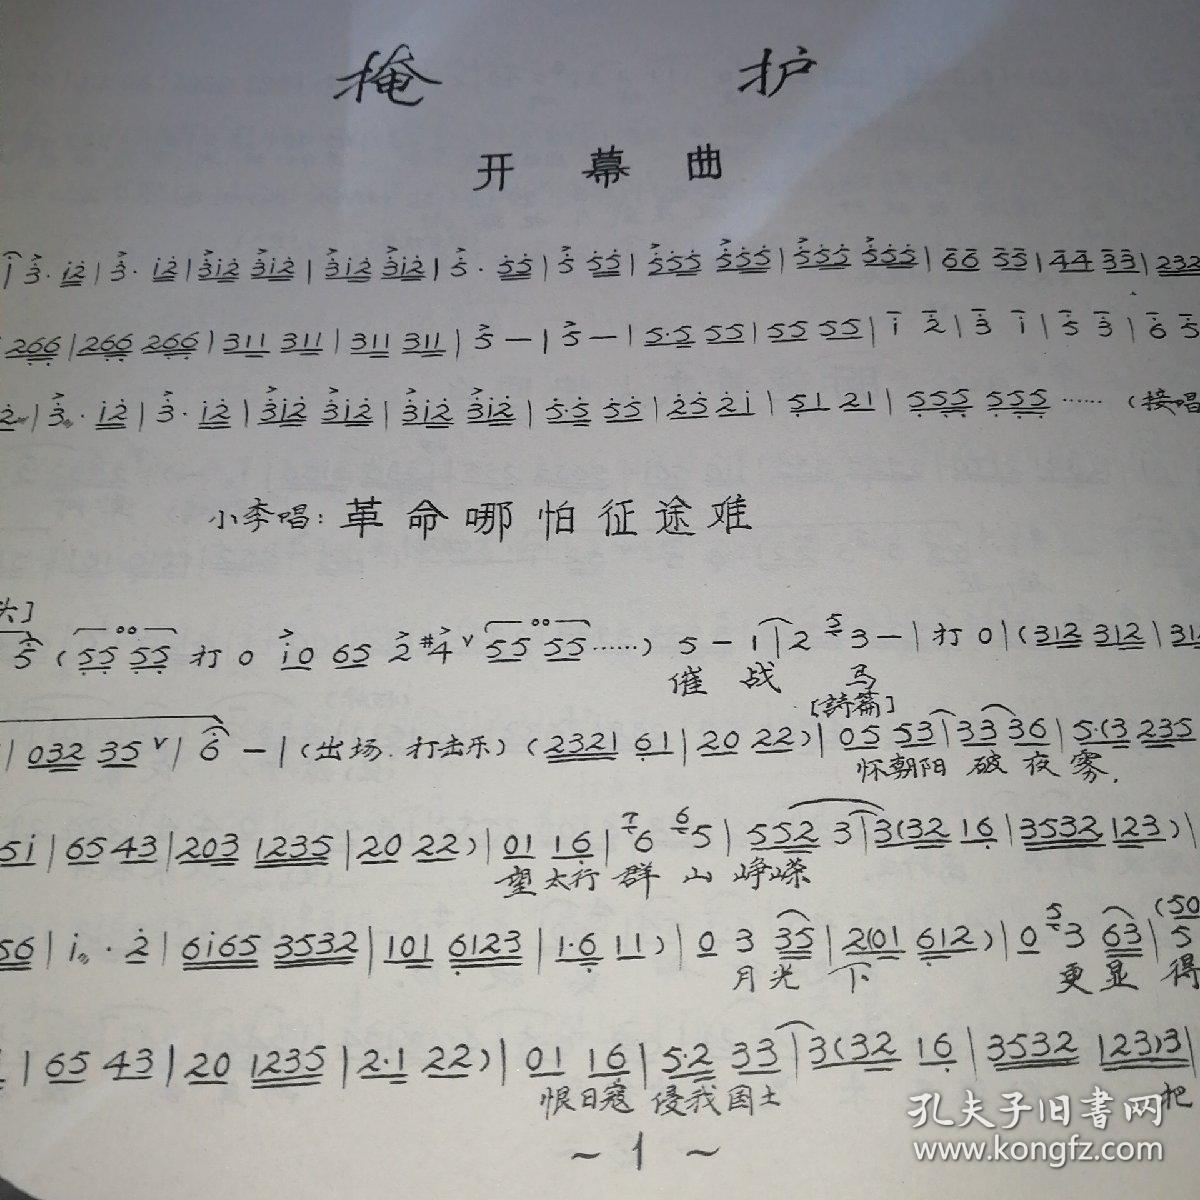 掩 护
开 幕 曲
i 3. i2 | 3. i2 | 3i2 3i2 | 3i2 3i2 | 5. 55 | 5 55 | 555 555 | 555 555 | 66 55 | 44 33 | 232
266 | 266 266 | 311 311 | 311 311 | 5 — | 5 — | 5·5 55 | 55 55 | i 2 | 3 i | 5 3 | 6 5
2 | 3. i2 | 3. i2 | 3i2 3i2 | 3i2 3i2 | 5·5 55 | 25 2i | 51 21 | 555 555 …… (接唱
小李唱: 革命哪怕征途难
头]
5 (55 55 打 0 i0 65 2 #4 ∨ 55 55 ……) 5 — 1 | 2 5 3 — | 打 0 | (312 312 | 312
催 战 马
[詩篇]
| 032 35 ∨ | 6 — | (出场. 打击乐) (2321 61 | 20 22) | 05 53 | 33 36 | 5·(3 235
怀朝阳 破夜雾.
5i | 65 43 | 203 1235 | 20 22) | 01 16 | 7 6 6 5 | 552 3 | 3(32 16 | 3532 123) |
望太行 群山峥嵘
56 | i. 2 | 6i65 3532 | 101 6123 | 1·6 11) | 0 3 35 | 2(01 612) | 0 5 3 63 | 5 (50
月光 下 更显 得
| 65 43 | 20 1235 | 2·1 22) | 01 16 | 5·2 33 | 3(32 16 | 3532 123) 3 |
恨日寇 侵我国土 把
~ 1 ~
孔夫子旧书网
www.kongfz.com